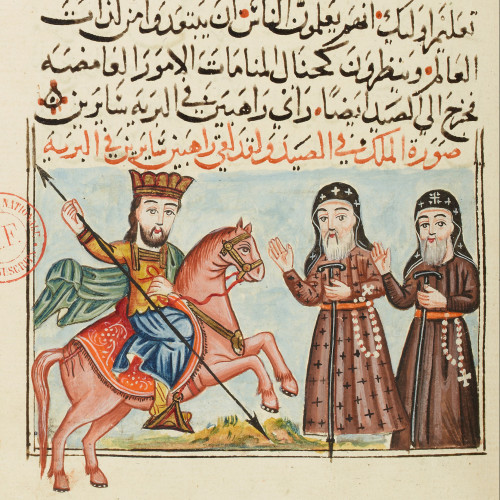 تعليم اوليك انهم يعلمون الناس ان يبتعدوا من لذات
العالم وينظرون كخيال المنامات الامور الغامضه
فخرج الي الصيد ايضا راي راهبين في البريه سايرين
صورة الملك في الصيد راهبين سايرين في البريه